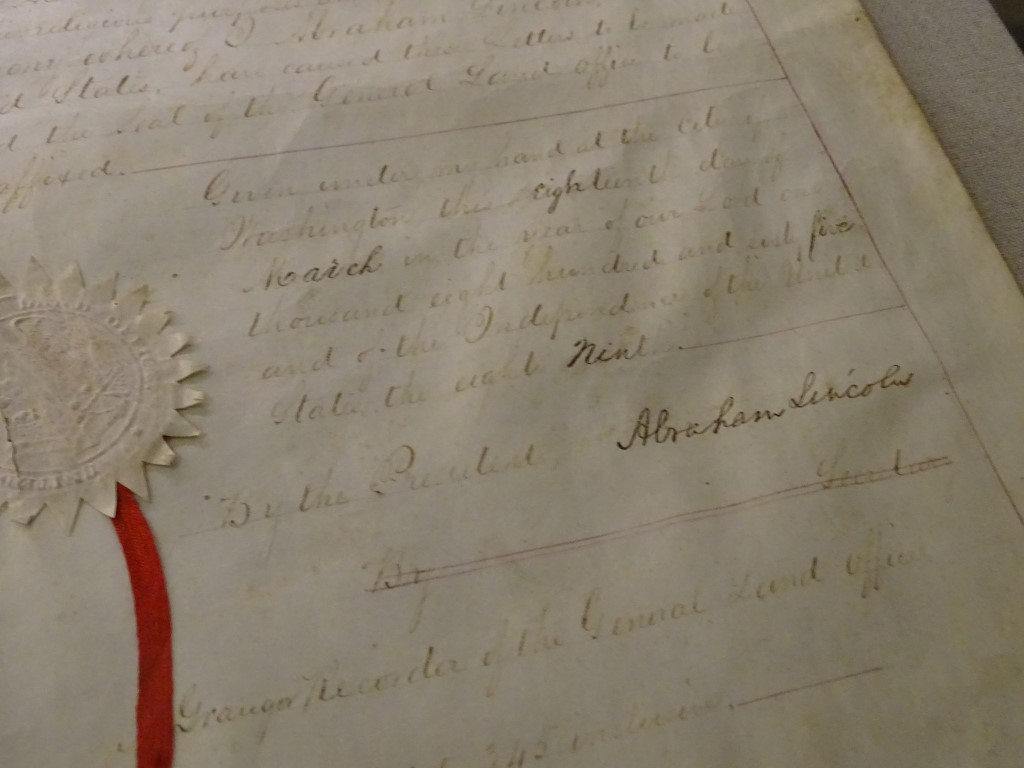 I Abraham Lincoln,
States, have caused these Letters to be made
the Seal of the General Land Office to be
affixed.
Given under my hand at the City of
Washington this eighteenth day of
March in the year of our Lord one
thousand eight hundred and sixty five
and of the Independence of the United
States the eighty Nint
By the President Abraham Lincoln
By
Granger Recorder of the General Land Office
345 inclusive.